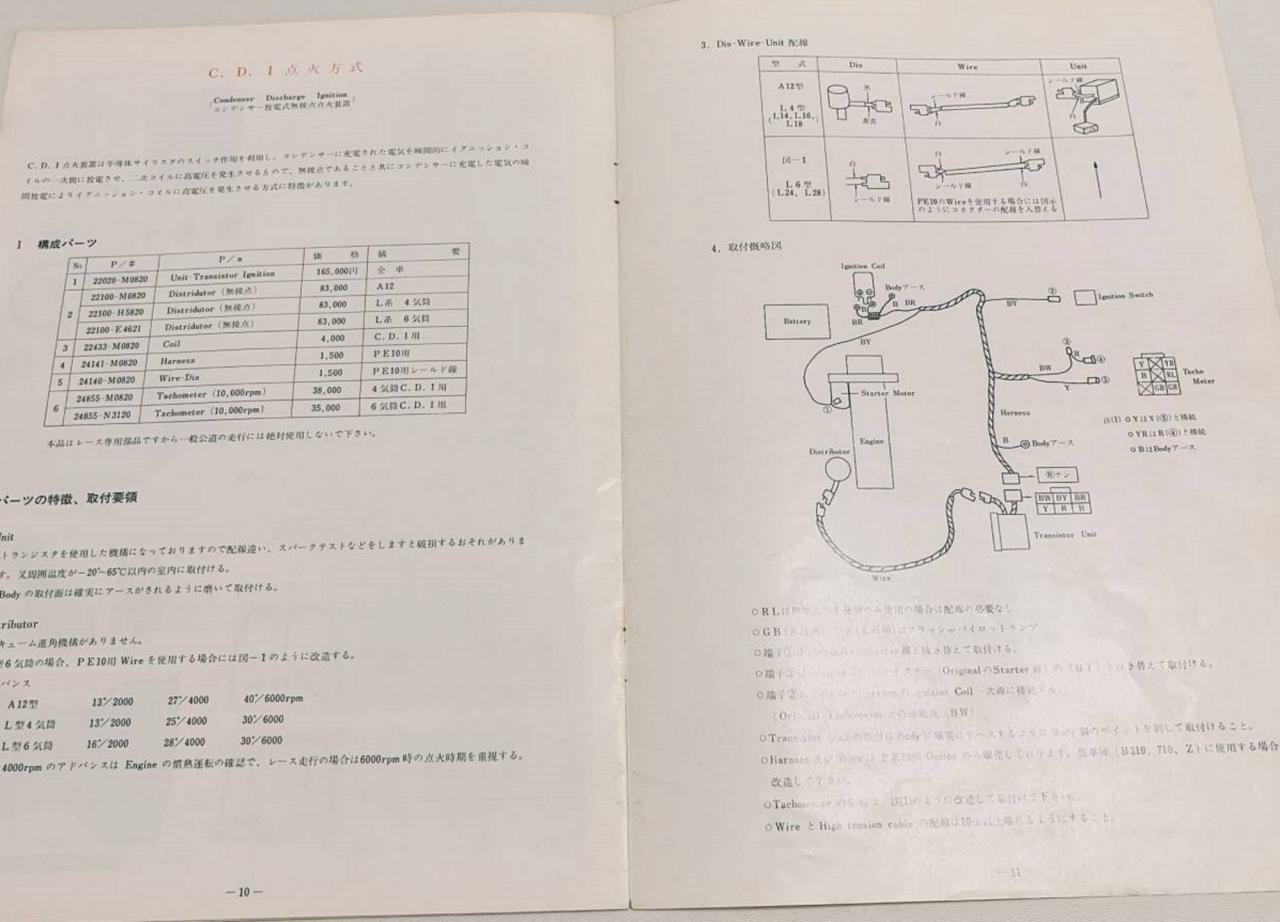 C. D. I 点火方式
(Condenser Discharge Ignition
コンデンサー放電式無接点点火装置)
C. D. I 点火装置は半導体サイリスタのスイッチ作用を利用し、コンデンサーに充電された電気を瞬間的にイグニッション・コ
イルの一次側に放電させ、二次コイルに高電圧を発生させるもので、無接点であることと共にコンデンサーに充電した電気の瞬
間放電によりイグニッション・コイルに高電圧を発生させる方式に特徴があります。
1 構成パーツ
No P/# P/n 価格 摘要
1 22020-M0820 Unit-Transistor Ignition 165,000円 全車
2 22100-M0820 Distridutor (無接点) 83,000 A12
22100-H5820 Distridutor (無接点) 83,000 L系 4気筒
22100-E4621 Distridutor (無接点) 83,000 L系 6気筒
3 22433-M0820 Coil 4,000 C.D.I用
4 24141-M0820 Harness 1,500 PE10用
5 24140-M0820 Wire-Dis 1,500 PE10用シールド線
6 24855-M0820 Tachometer (10,000rpm) 38,000 4気筒C.D.I用
24855-N3120 Tachometer (10,000rpm) 35,000 6気筒C.D.I用
本品はレース専用部品ですから一般公道の走行には絶対使用しないで下さい。
パーツの特徴、取付要領
nit
トランジスタを使用した機構になっておりますので配線違い、スパークテストなどをしますと破損するおそれがありま
す。又周囲温度が−20°~65℃以内の室内に取付ける。
Body の取付面は確実にアースがされるように磨いて取付ける。
tributor
キューム進角機構がありません。
型6気筒の場合、PE10用 Wire を使用する場合には図−1のように改造する。
バンス
A12型 13°/2000 27°/4000 40°/6000rpm
L型4気筒 13°/2000 25°/4000 30°/6000
L型6気筒 16°/2000 28°/4000 30°/6000
4000rpm のアドバンスは Engine の慣熟運転の確認で、レース走行の場合は6000rpm 時の点火時期を重視する。
—10—
3. Dis-Wire-Unit 配線
型式 Dis Wire Unit
A12型
L4型
(L14, L16,
L18
黒
黄青
シールド線
白
シールド線
白
図−1
L6型
(L24, L28)
白
シールド線
白
シールド線
シールド線
白
PE10のWireを使用する場合には図示
のようにコネクターの配線を入替える
4. 取付概略図
Ignition Coil
Bodyアース
B
B BR
BR
BY
Battery
BY
②
Ignition Switch
③
R
④
BW
Y
⑤
Y YR
B RL
GB GR
Tacho
Meter
注(1) ○YはY(⑤)と接続
○YRはR(④)と接続
○BはBodyアース
Starter Motor
①
Harness
Engine
Distributor
B
Bodyアース
Ⓡナシ
BW BY BR
Y R B
Transistor Unit
Wire
○RLは
配線の必要なし
○GB
はフラッシャパイロットランプ
○端子①
と抜き替えて取付ける。
○端子
(OriginalのStarter
き替えて取付ける。
○端子②
Coil 一次線に接続
(BW)
のペイントを剥して取付けること。
○Harness
(B210, 710, Z) に使用する場合
改造して下さい。
のように改造して取付けて下さい
○Wire と High tension cable の配線は10
離れるようにすること。
—11—